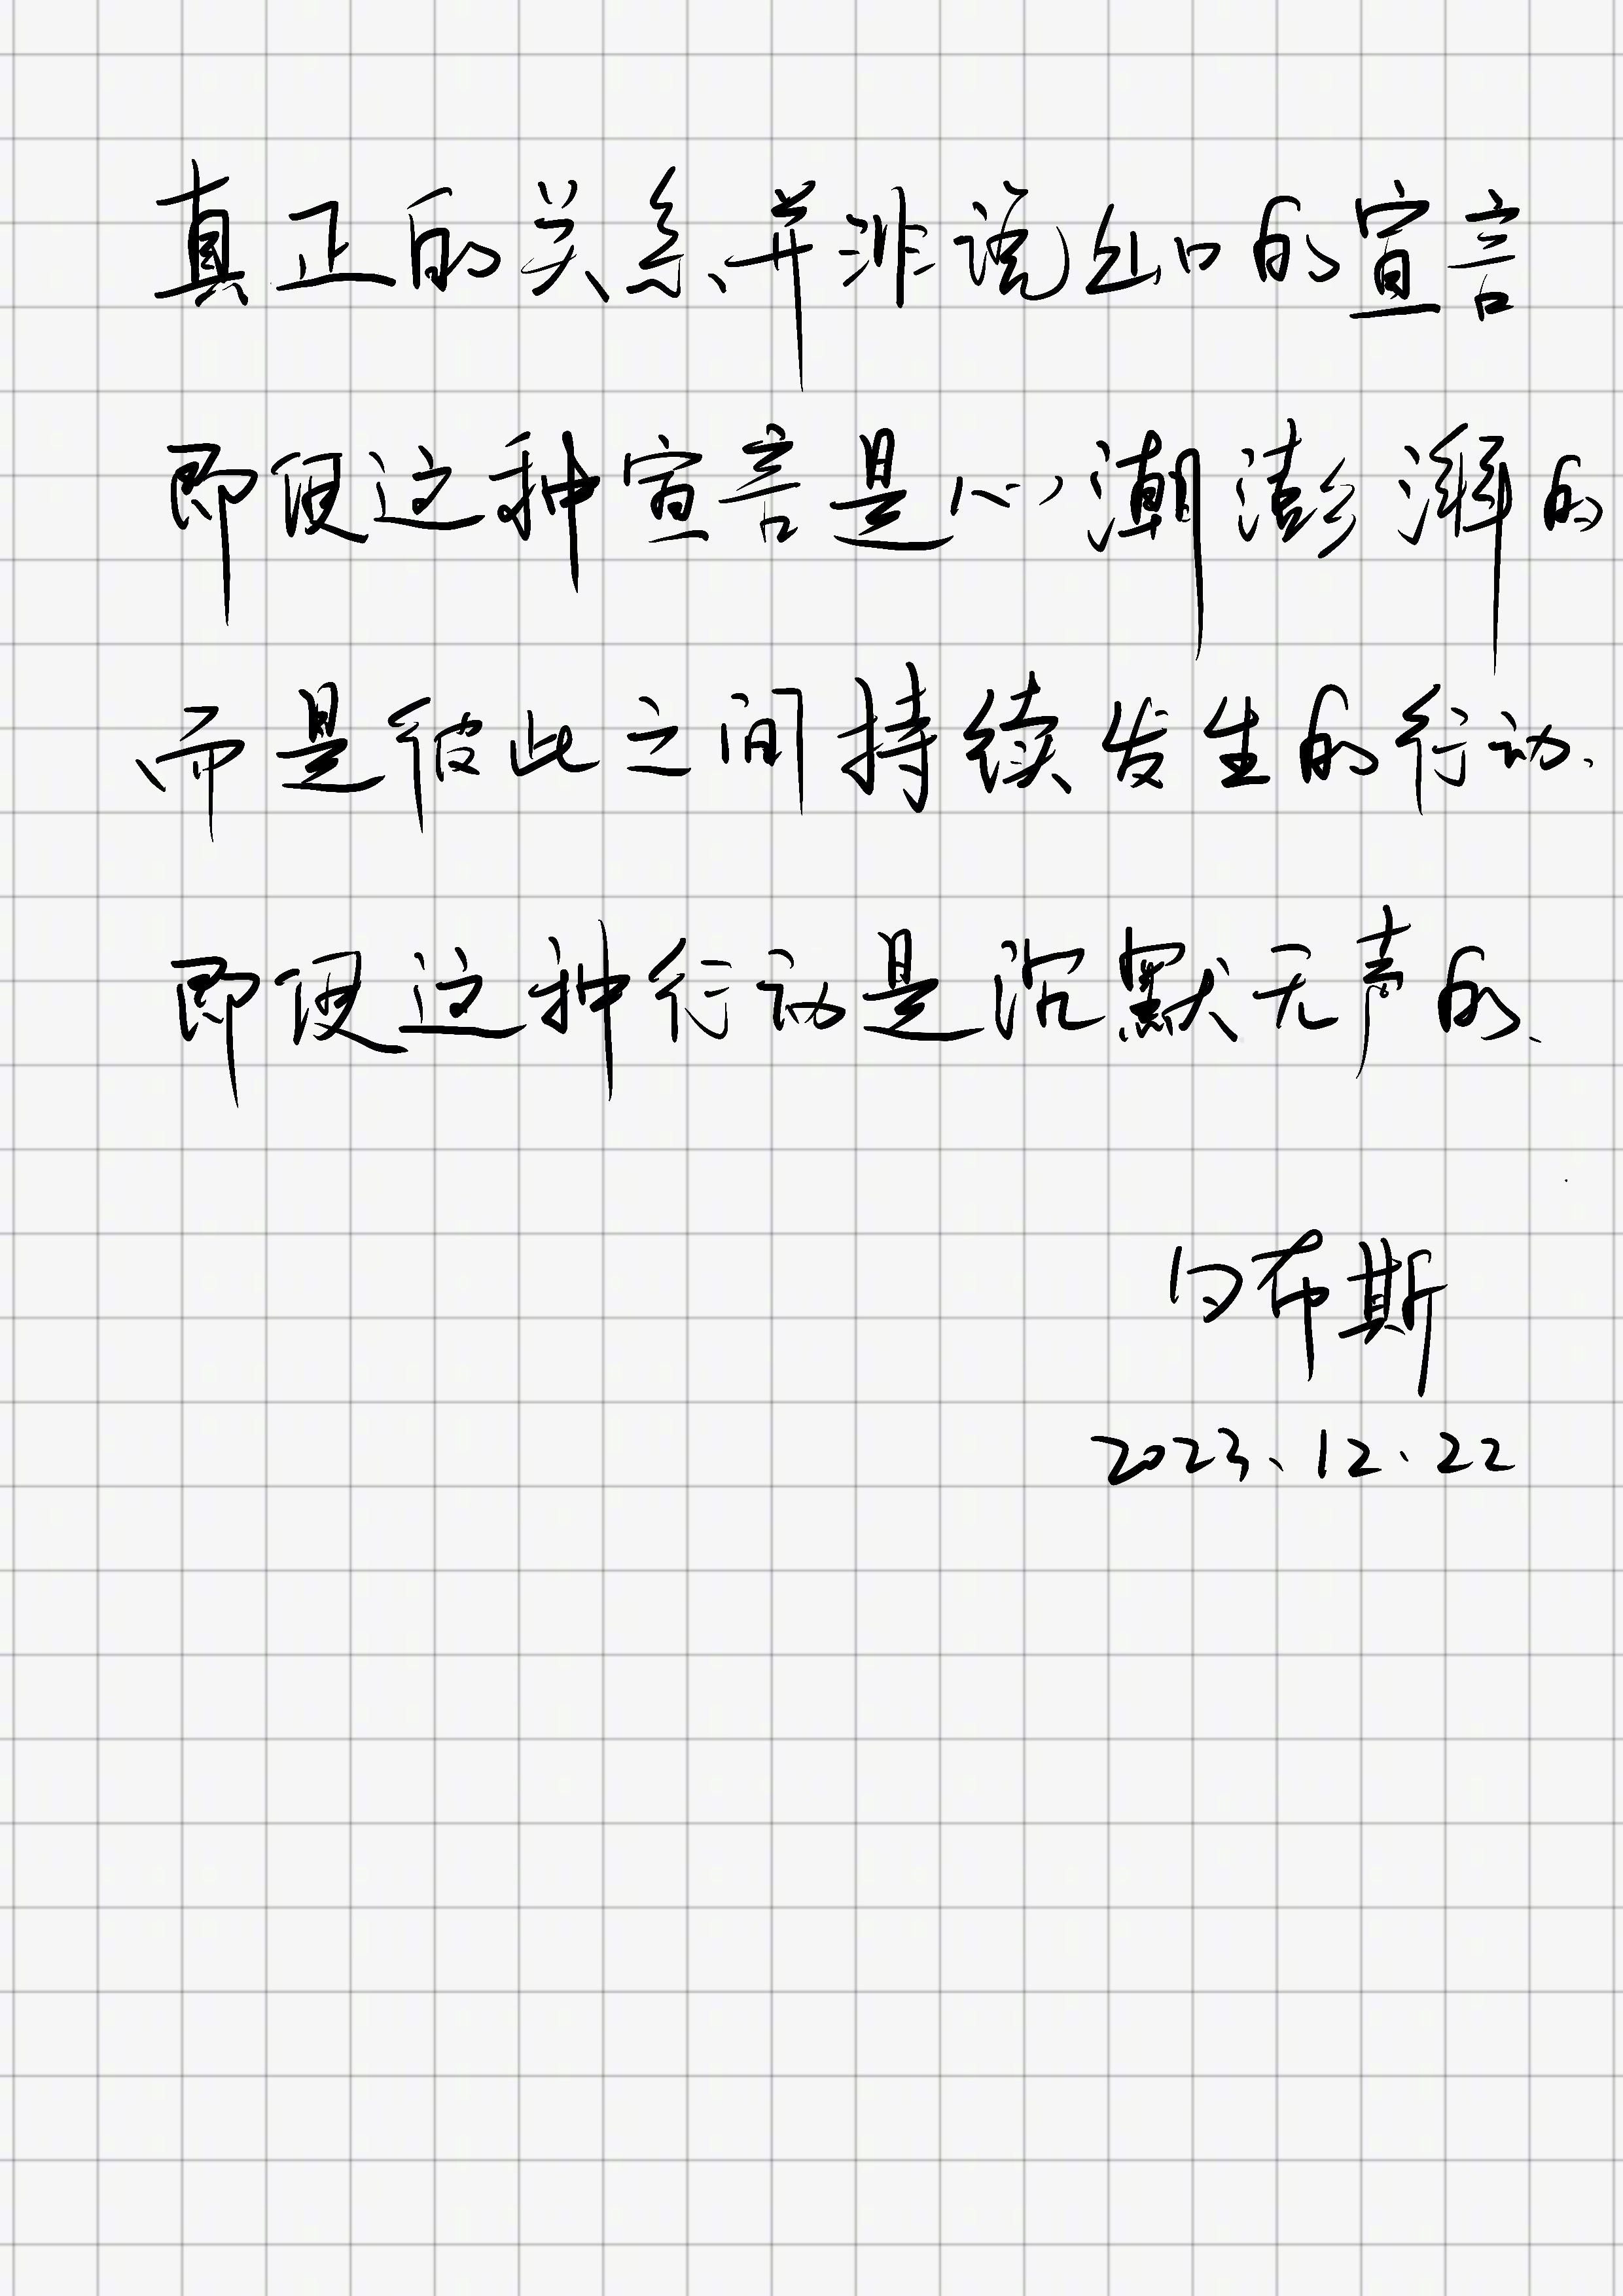 真正的关系并非说出口的宣言
即便这种宣言是心潮澎湃的
而是彼此之间持续发生的行动.
即便这种行动是沉默无声的.
白布斯
2023.12.22